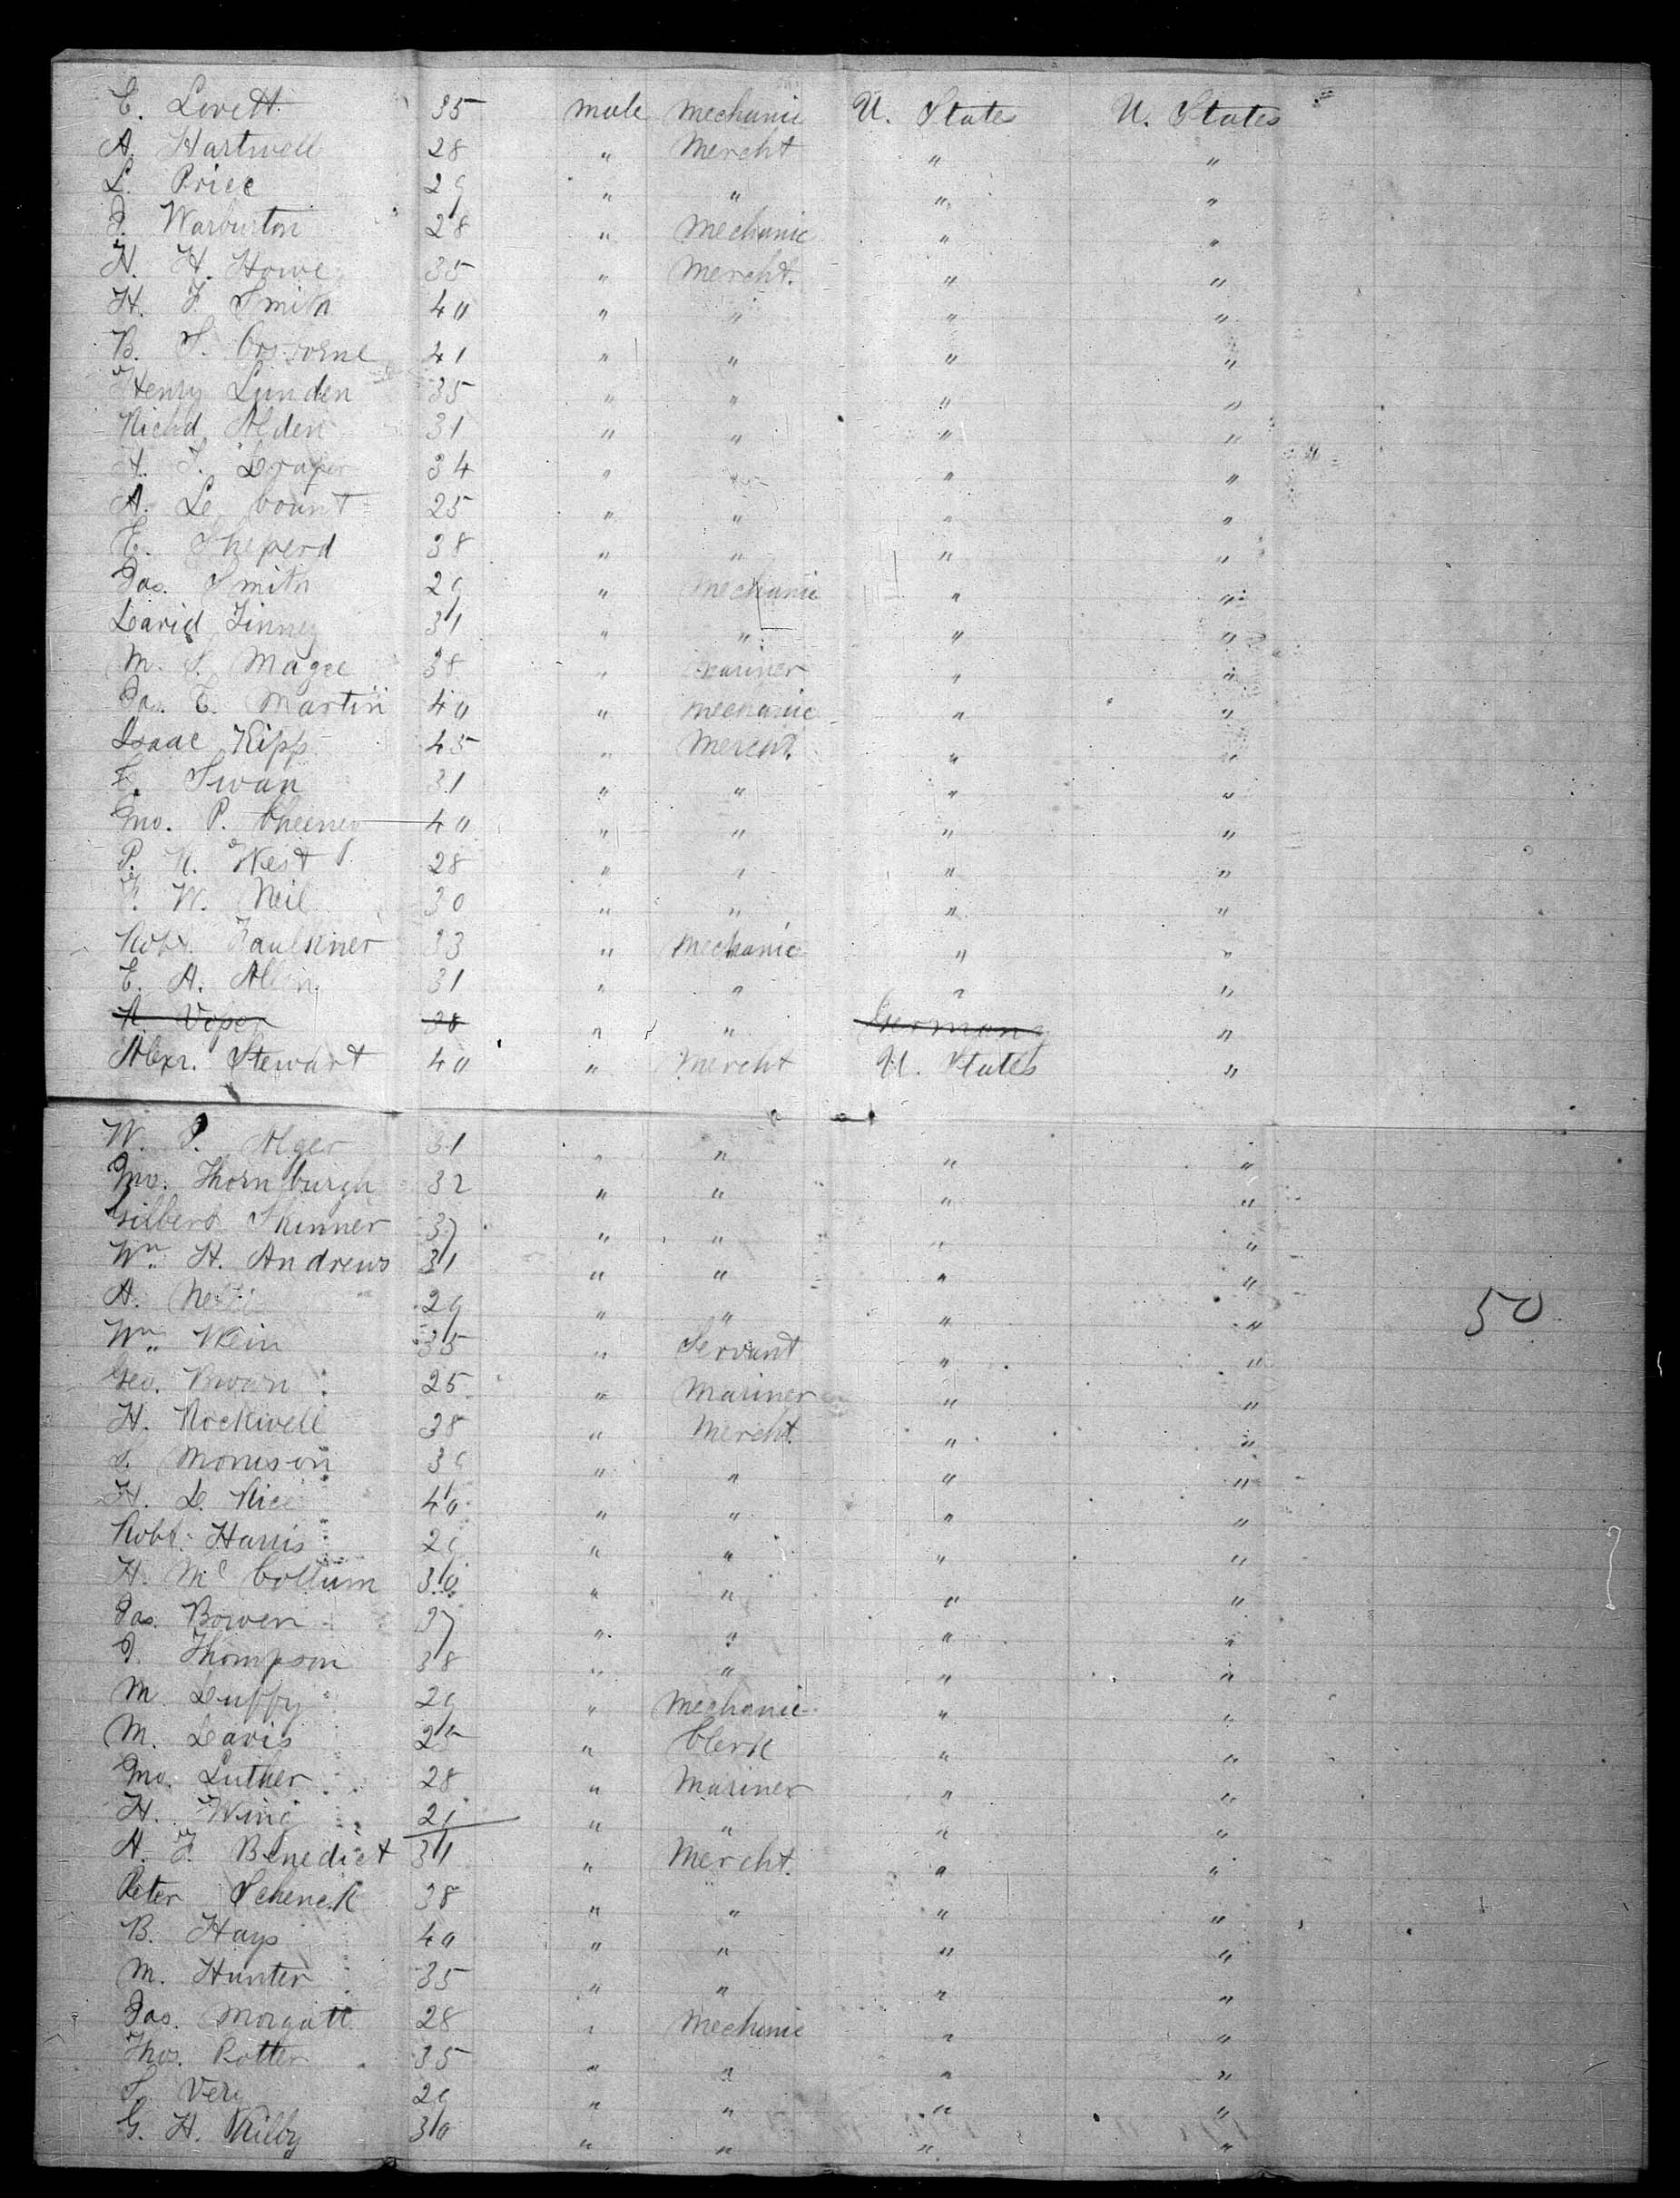 E. Lovett 35 male mechanic U. States U. States
A. Hartwell 28 " mercht " "
L. Price 29 " " " "
J. Warburton 28 " mechanic " "
H. H. Howe 35 " mercht. " "
H. F. Smith 40 " " " "
B. S. Osborne 41 " " " "
Henry Linden 35 " " " "
Richd Alden 31 " " " "
A. S. Draper 34 " " " "
A. Le Count 25 " " " "
E. Sheperd 38 " " " "
Jas. Smith 29 " mechanic " "
David Finney 31 " " " "
M. S. Magee 38 " mariner " "
Jas. E. Martin 40 " mechanic " "
Isaac Kipp 45 " mercht. " "
E. Swan 31 " " " "
Jno. P. Cheeney 40 " " " "
P. R. West 28 " " " "
F. W. Neil 30 " " " "
Robt. Faulkner 33 " mechanic " "
E. A. 31 " " " "
R Voper 38 " " Germany "
Alexr. Stewart 40 " mercht U. States "
W. P. Alger 31 " " " "
Jno. Thornburgh 32 " " " "
Gilbert Skinner 37 " " " "
Wm. H. Andrews 31 " " " "
A. 29 " " " "
50
Wm. Wein 35 " Servant " "
Geo. 25 " mariner " "
H. Rockwell 38 " mercht. " "
S. Morrison 39 " " " "
H. D. Rice 40 " " " "
Robt. Harris 29 " " " "
H. Mc Collum 30 " " " "
Jas. Bowen 37 " " " "
J. Thompson 38 " " " "
M. Duffy 29 " mechanic " "
M. Davis 25 " Clerk " "
Jno. Luther 28 " mariner " "
H. Wing 21 " " " "
A. F. Benedict 31 " mercht. " "
Peter Schenck 38 " " " "
B. Hays 40 " " " "
M. Hunter 35 " " " "
Jas. Morgatt 28 " mechanic " "
Thos. Potter 35 " " " "
S. Very 29 " " " "
G. H. Kilby 30 " " " "